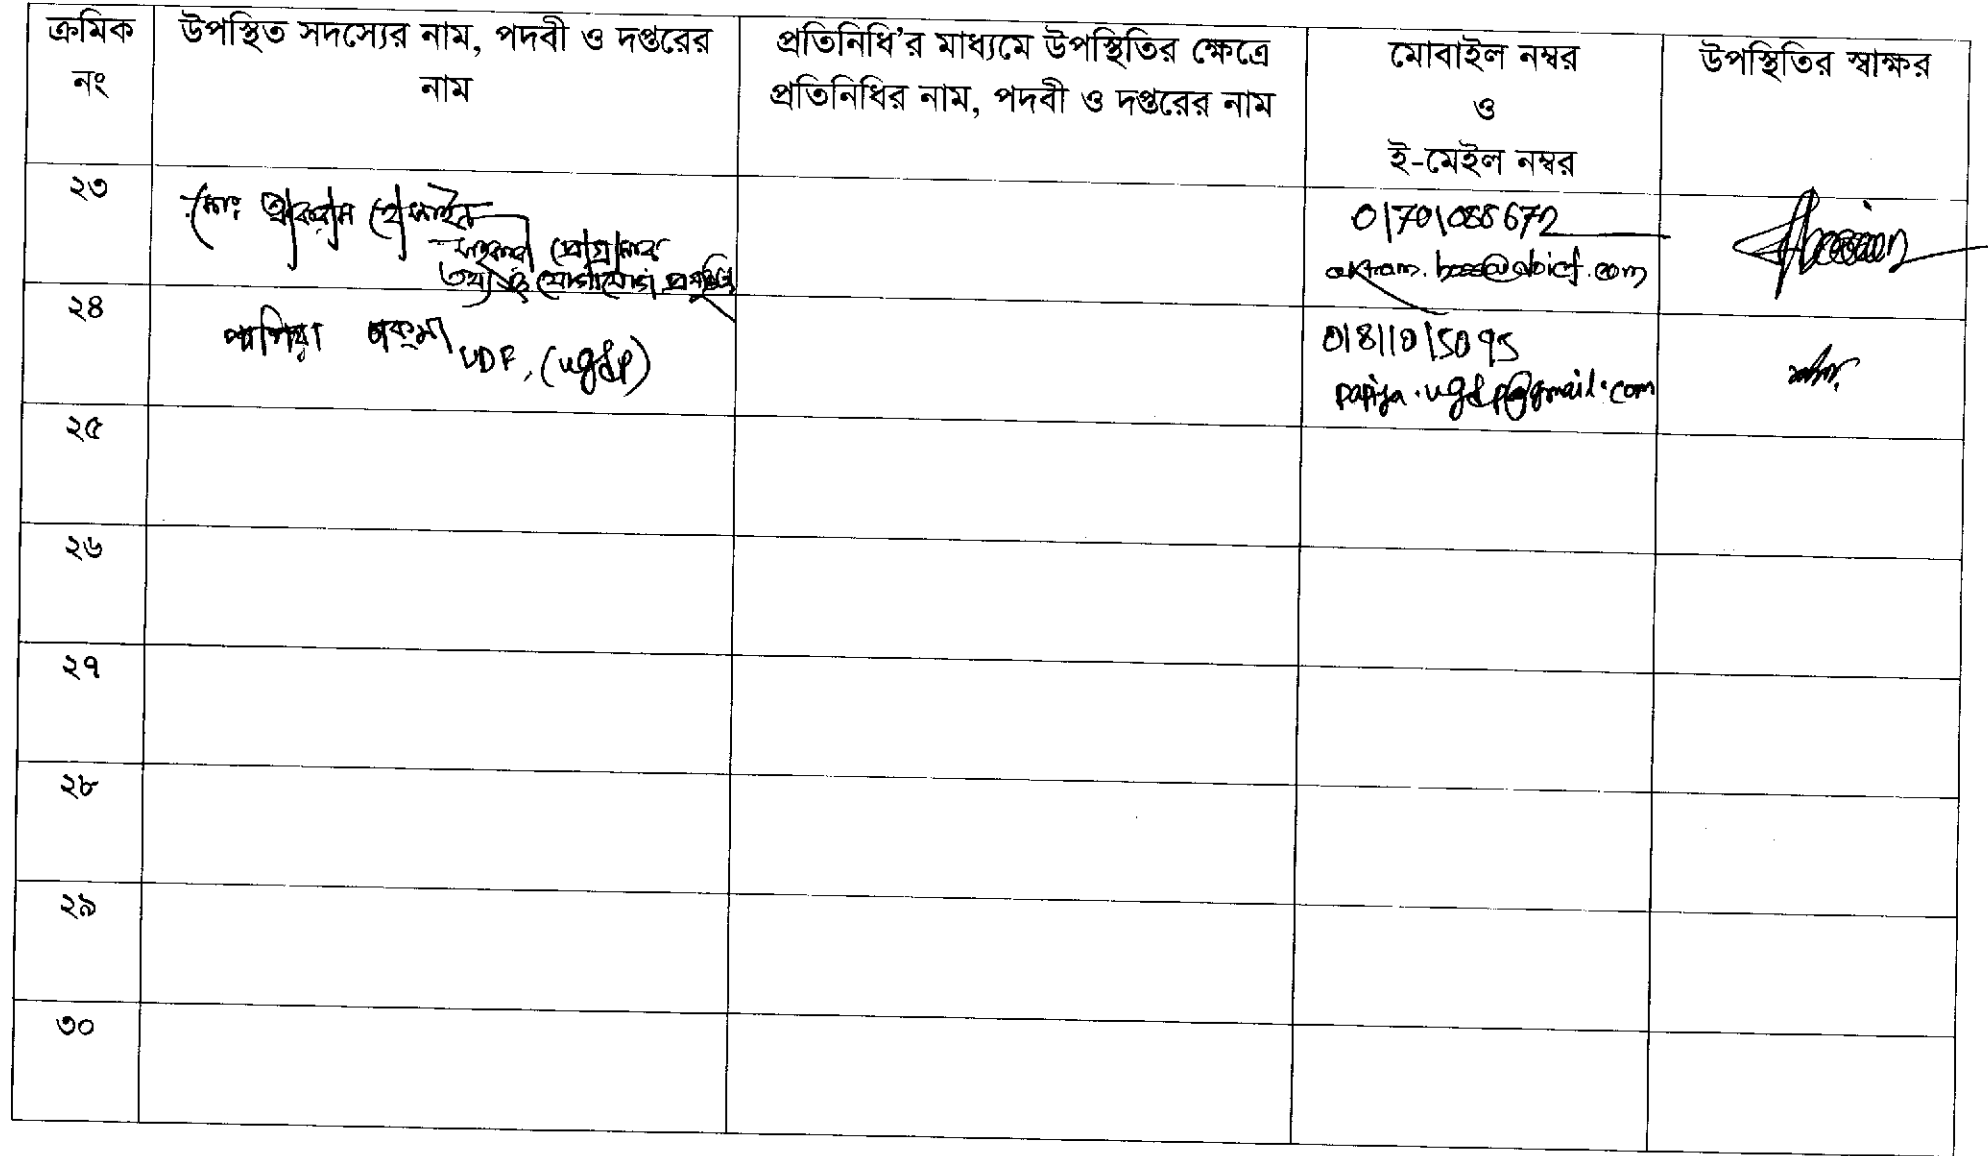 ক্রমিক নং
উপস্থিত সদস্যের নাম, পদবী ও দপ্তরের নাম
প্রতিনিধি'র মাধ্যমে উপস্থিতির ক্ষেত্রে প্রতিনিধির নাম, পদবী ও দপ্তরের নাম
মোবাইল নম্বর
ও
ই-মেইল নম্বর
উপস্থিতির স্বাক্ষর
২৩
মোঃ আকরাম হোসাইন
সহকারী প্রোগ্রামার
তথ্য ও যোগাযোগ প্রযুক্তি
01701088672
২৪
পাপিয়া চাকমা UDF, (ugdp)
01811015095
papiya.ugdp@gmail.com
২৫
২৬
২৭
২৮
২৯
৩০